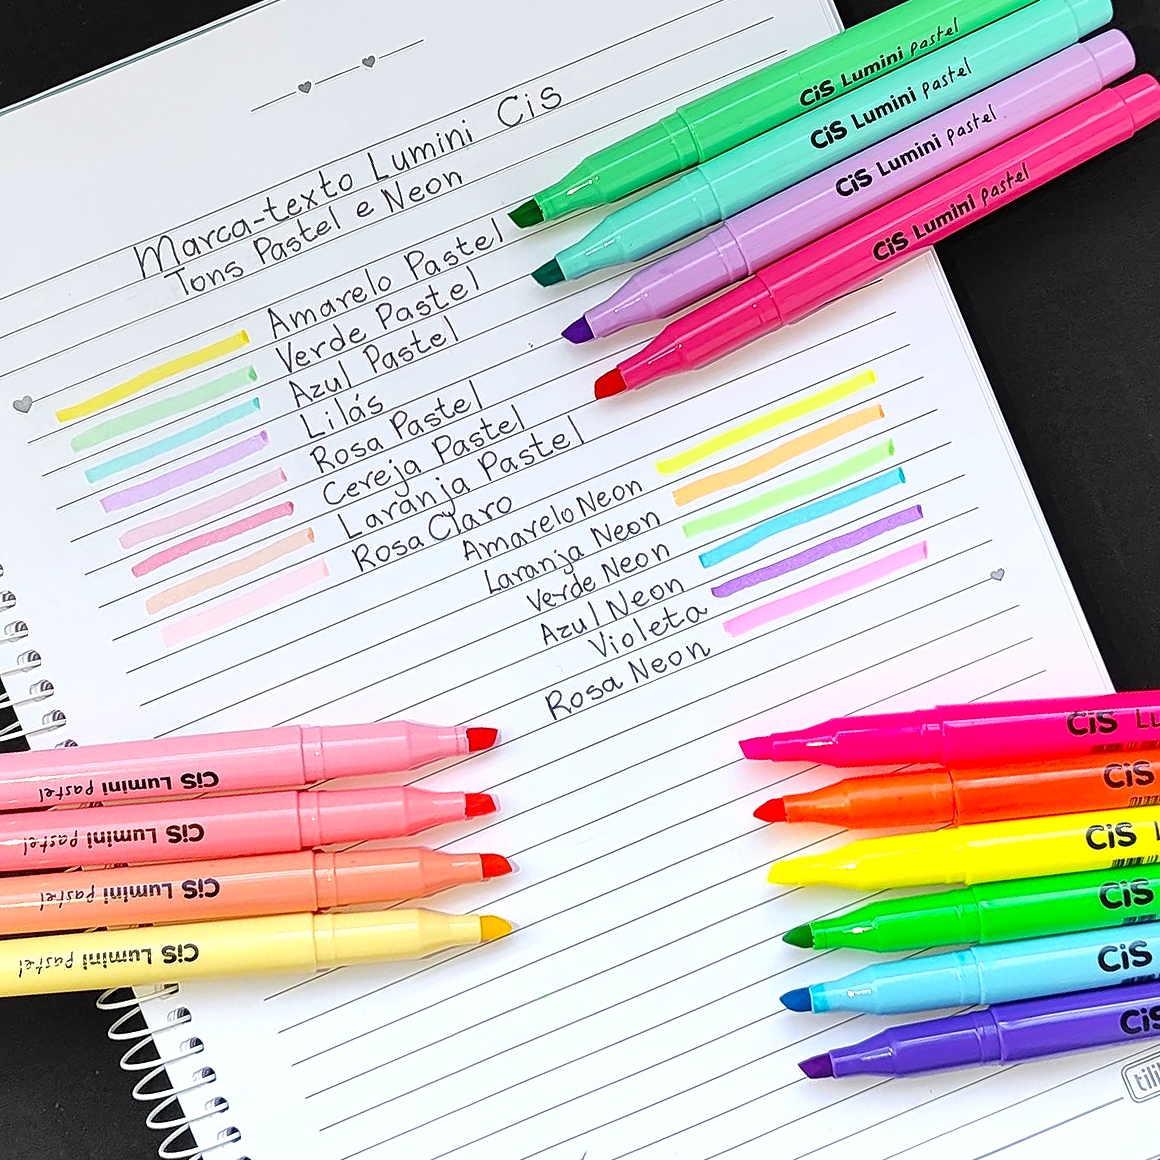 Marca-texto Lumini Cis
Tons Pastel e Neon
Amarelo Pastel
Verde Pastel
Azul Pastel
Lilás
Rosa Pastel
Cereja Pastel
Laranja Pastel
Rosa Claro
Amarelo Neon
Laranja Neon
Verde Neon
Azul Neon
Violeta
Rosa Neon
CiS Lumini pastel
CiS Lumini pastel
CiS Lumini pastel
CiS Lumini pastel
CiS Lumini pastel
CiS Lumini pastel
CiS Lumini pastel
CiS Lumini pastel
CiS Lu
CiS
CiS
CiS
CiS
CiS
tili